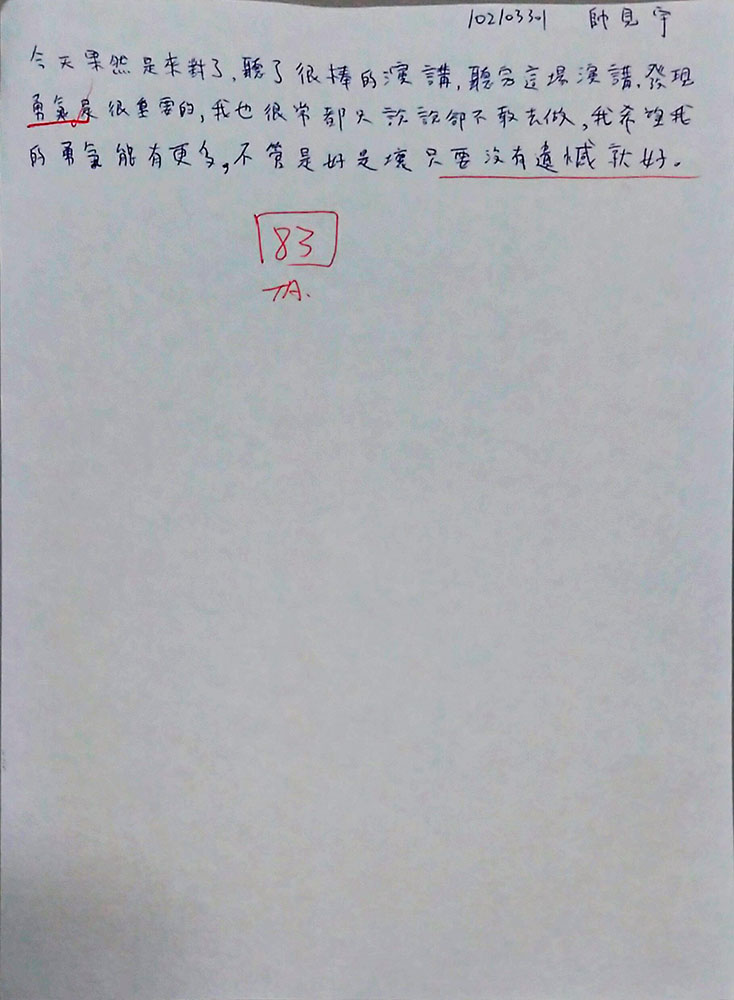 10210330 帥見宇
今天果然是來對了,聽了很棒的演講,聽完這場演講,發現
勇氣是很重要的,我也很常都只說說卻不敢去做,我希望我
的勇氣能有更多,不管是好是壞只要沒有遺憾就好。
83
TA.